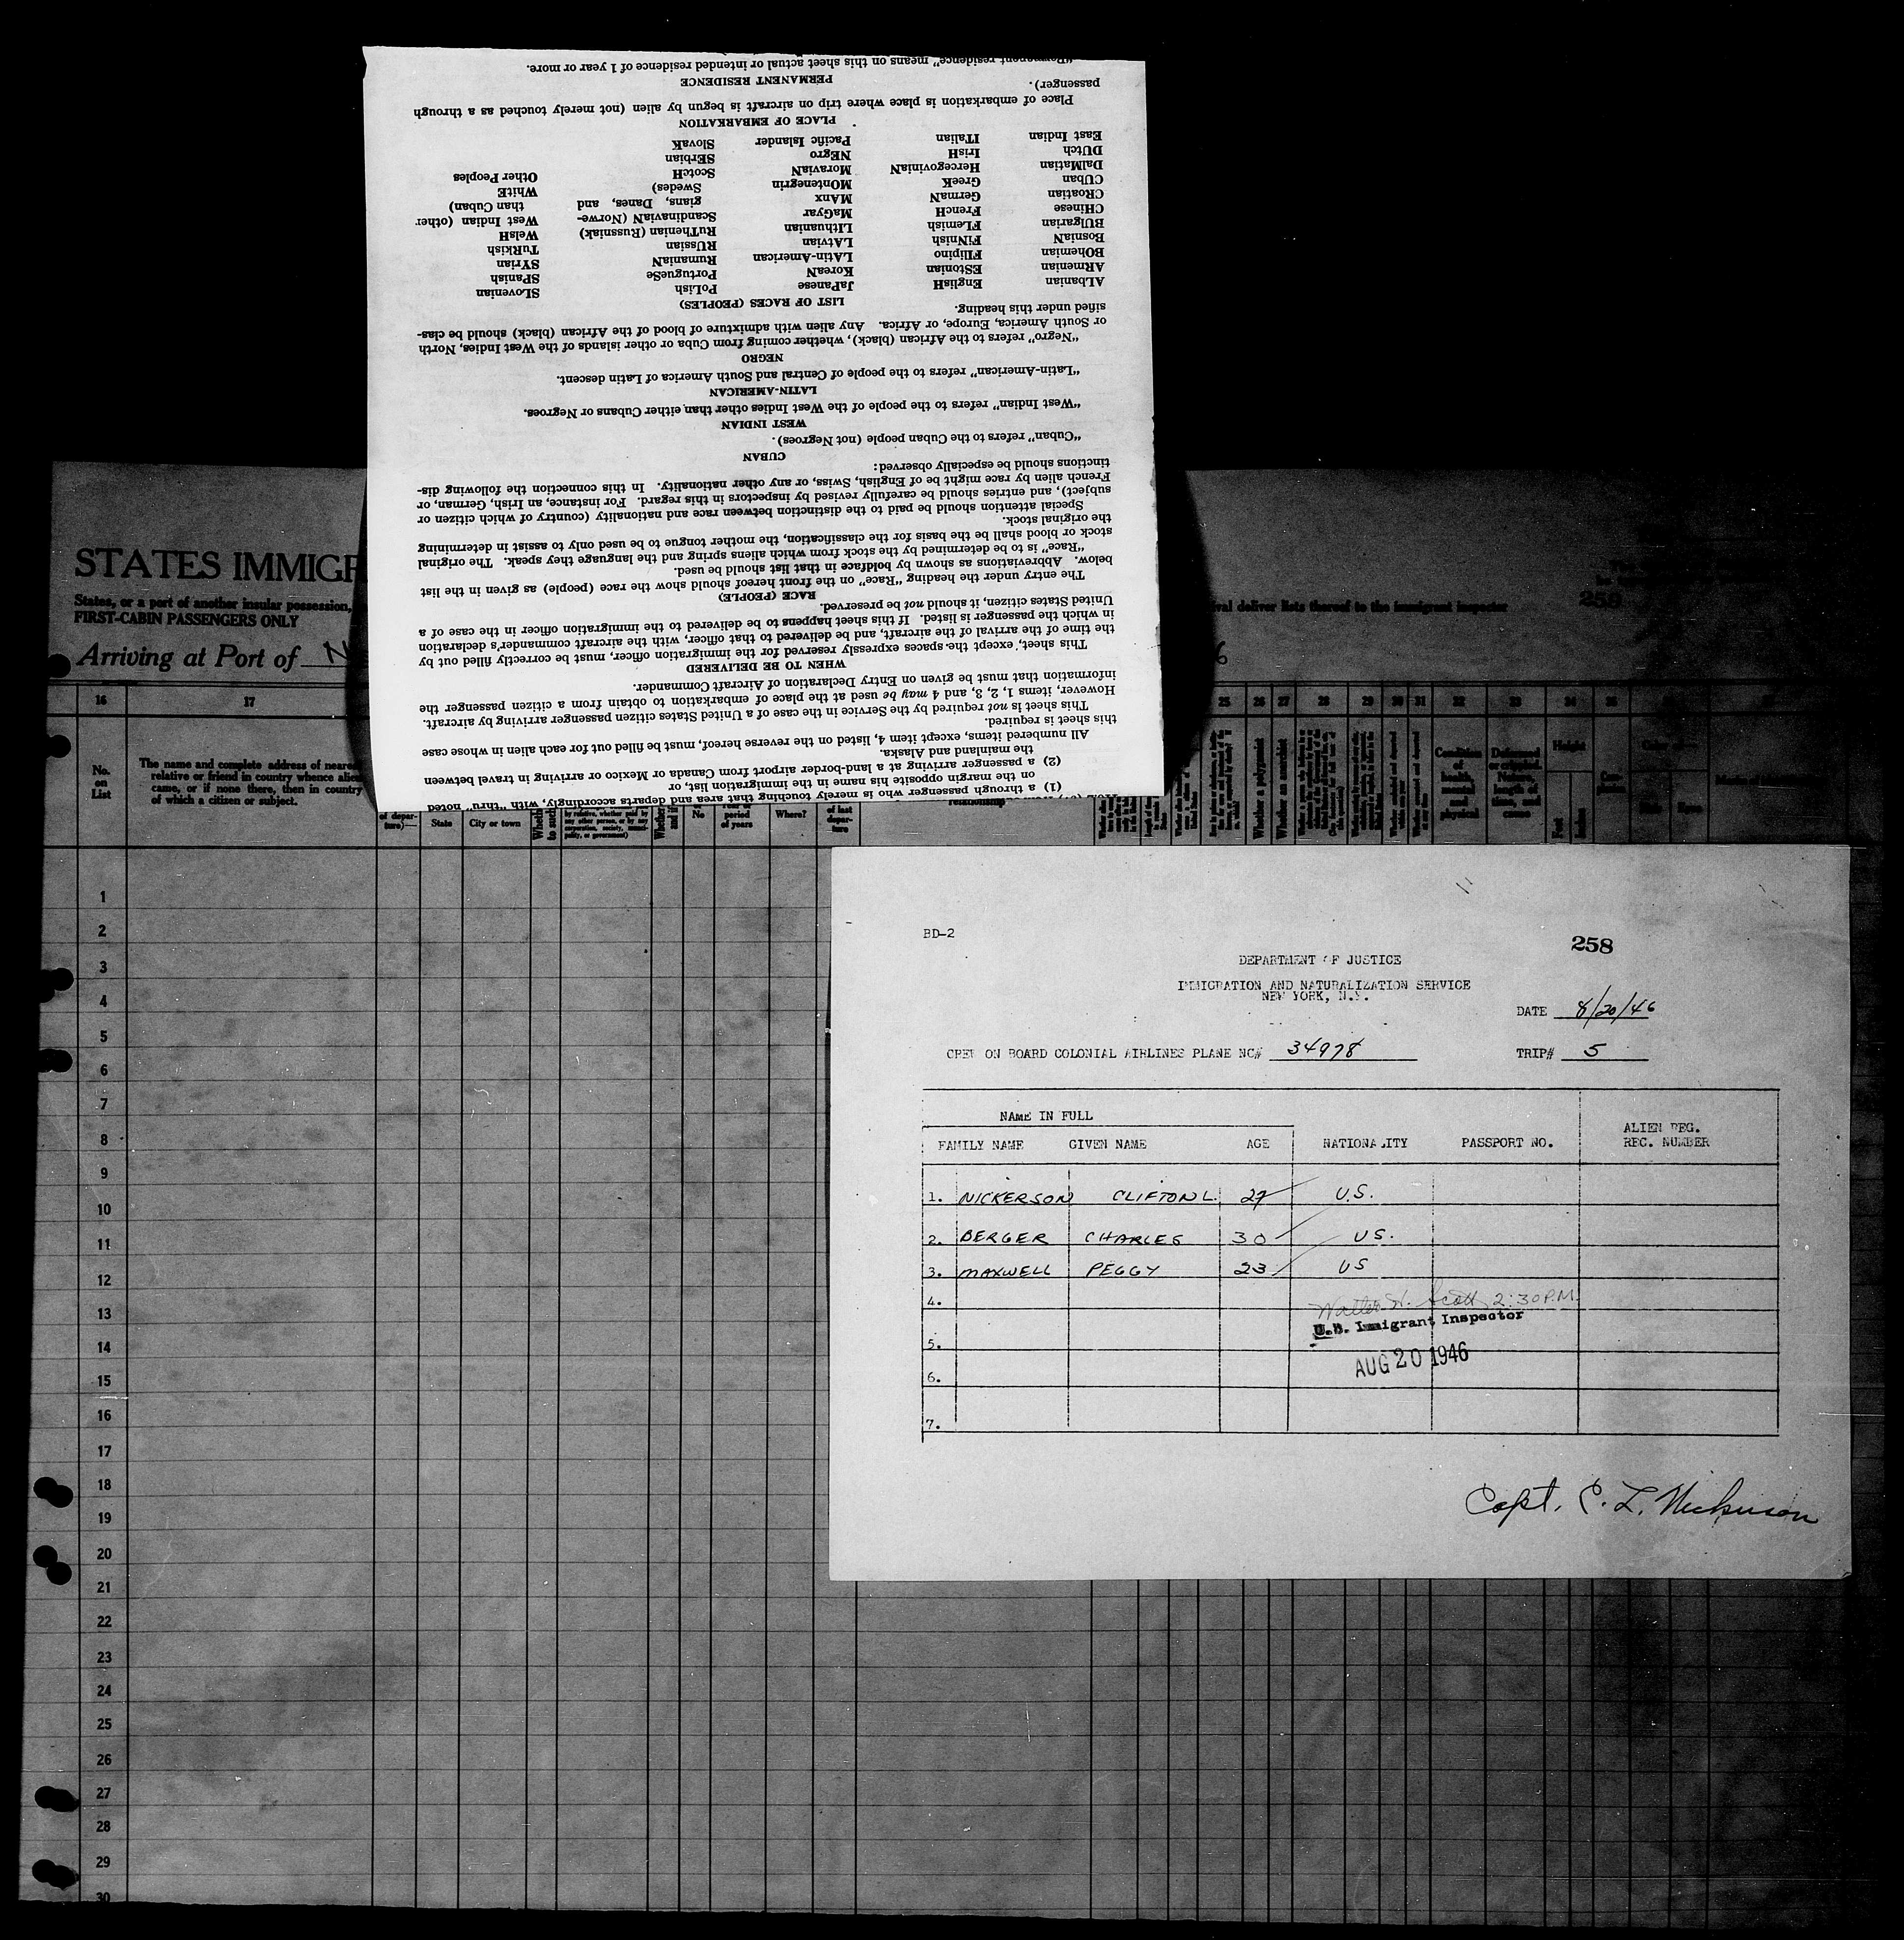 "Permanent residence" means on this sheet actual or intended residence of 1 year or more.
PERMANENT RESIDENCE
passenger).
Place of embarkation is place where trip on aircraft is begun by alien (not merely touched as a through
PLACE OF EMBARKATION
East Indian ITalian Pacific Islander SlovaK
DUtch IrisH NEgro SErbian
DalMatian HercegoviniaN MoraviaN ScotcH Other Peoples
CUban GreeK MOntenegrin Swedes) WhitE
CRoatian GermaN MAnx gians, Danes, and than Cuban)
CHinese FrencH MaGyar ScandinaviaN (Norwe- West Indian (other
BUlgarian FLemish LIthuanian RuThenian (Russniak) WelsH
BosniaN FiNnish LAtvian RUssian TuRkish
BOhemian FIlipino LAtin-American RumaniaN SYrian
ARmenian EStonian KoreaN PortugueSe SPanish
ALbanian EngliSH JaPanese PoLish SLovenian
LIST OF RACES (PEOPLES)
sified under this heading.
or South America, Europe, or Africa. Any alien with admixture of blood of the African (black) should be clas-
"Negro" refers to the African (black), whether coming from Cuba or other islands of the West Indies, North
NEGRO
"Latin-American" refers to the people of Central and South America of Latin descent.
LATIN-AMERICAN
"West Indian" refers to the people of the West Indies other than either Cubans or Negroes.
WEST INDIAN
"Cuban" refers to the Cuban people (not Negroes).
CUBAN
tinctions should be especially observed:
French alien by race might be of English, Swiss, or any other nationality. In this connection the following dis-
subject), and entries should be carefully revised by inspectors in this regard. For instance, an Irish, German, or
Special attention should be paid to the distinction between race and nationality (country of which citizen or
the original stock.
stock or blood shall be the basis for the classification, the mother tongue to be used only to assist in determining
"Race" is to be determined by the stock from which aliens spring and the language they speak. The original
below. Abbreviations as shown by boldface in that list should be used.
The entry under the heading "Race" on the front hereof should show the race (people) as given in the list
RACE (PEOPLE)
United States citizen, it should not be preserved.
in which the passenger is listed. If this sheet happens to be delivered to the immigration officer in the case of a
the time of the arrival of the aircraft, and be delivered to that officer, with the aircraft commander's declaration
This sheet, except the spaces expressly reserved for the immigration officer, must be correctly filled out by
WHEN TO BE DELIVERED
information that must be given on Entry Declaration of Aircraft Commander.
However, items 1, 2, 3, and 4 may be used at the place of embarkation to obtain from a citizen passenger the
This sheet is not required by the Service in the case of a United States citizen passenger arriving by aircraft.
this sheet is required.
All numbered items, except item 4, listed on the reverse hereof, must be filled out for each alien in whose case
the mainland and Alaska.
(2) a passenger arriving at a land-border airport from Canada or Mexico or arriving in travel between
on the margin opposite his name in the immigration list, or
(1) a through passenger who is merely touching that area and departs accordingly, with "thru" noted
STATES IMMIGR
States, or a part of another insular possession,
FIRST-CABIN PASSENGERS ONLY
ival deliver lists thereof to the immigrant inspector
259
Arriving at Port of N
6
16 17 25 26 27 28 29 30 31 32 33 34 35
No. on List
The name and complete address of nearest
relative or friend in country whence alien
came, or if none there, then in country
of which a citizen or subject.
of depar-
ture)—
State
City or town
by relative, whether paid by
any other person, or by any
corporation, society, munici-
pality, or government)
No
period
of years
Where?
of last
depar-
ture
relationship
Whether a polygamist
Whether an anarchist
Height
Feet
1
2
3
4
5
6
7
8
9
10
11
12
13
14
15
16
17
18
19
20
21
22
23
24
25
26
27
28
29
30
BD-2
258
DEPARTMENT OF JUSTICE
IMMIGRATION AND NATURALIZATION SERVICE
NEW YORK, N.Y.
DATE 8/20/46
CREW ON BOARD COLONIAL AIRLINES PLANE NC# 34978 TRIP# 5
NAME IN FULL
FAMILY NAME GIVEN NAME AGE NATIONALITY PASSPORT NO. ALIEN REG.
REC. NUMBER
1. NICKERSON CLIFTON L. 27 U.S.
2. BERGER CHARLES 30 US.
3. MAXWELL PEGGY 23 US
4.
Walter H. Scott 2:30 P.M.
U.S. Immigrant Inspector
5.
AUG 20 1946
6.
7.
Capt. C. L. Nickerson